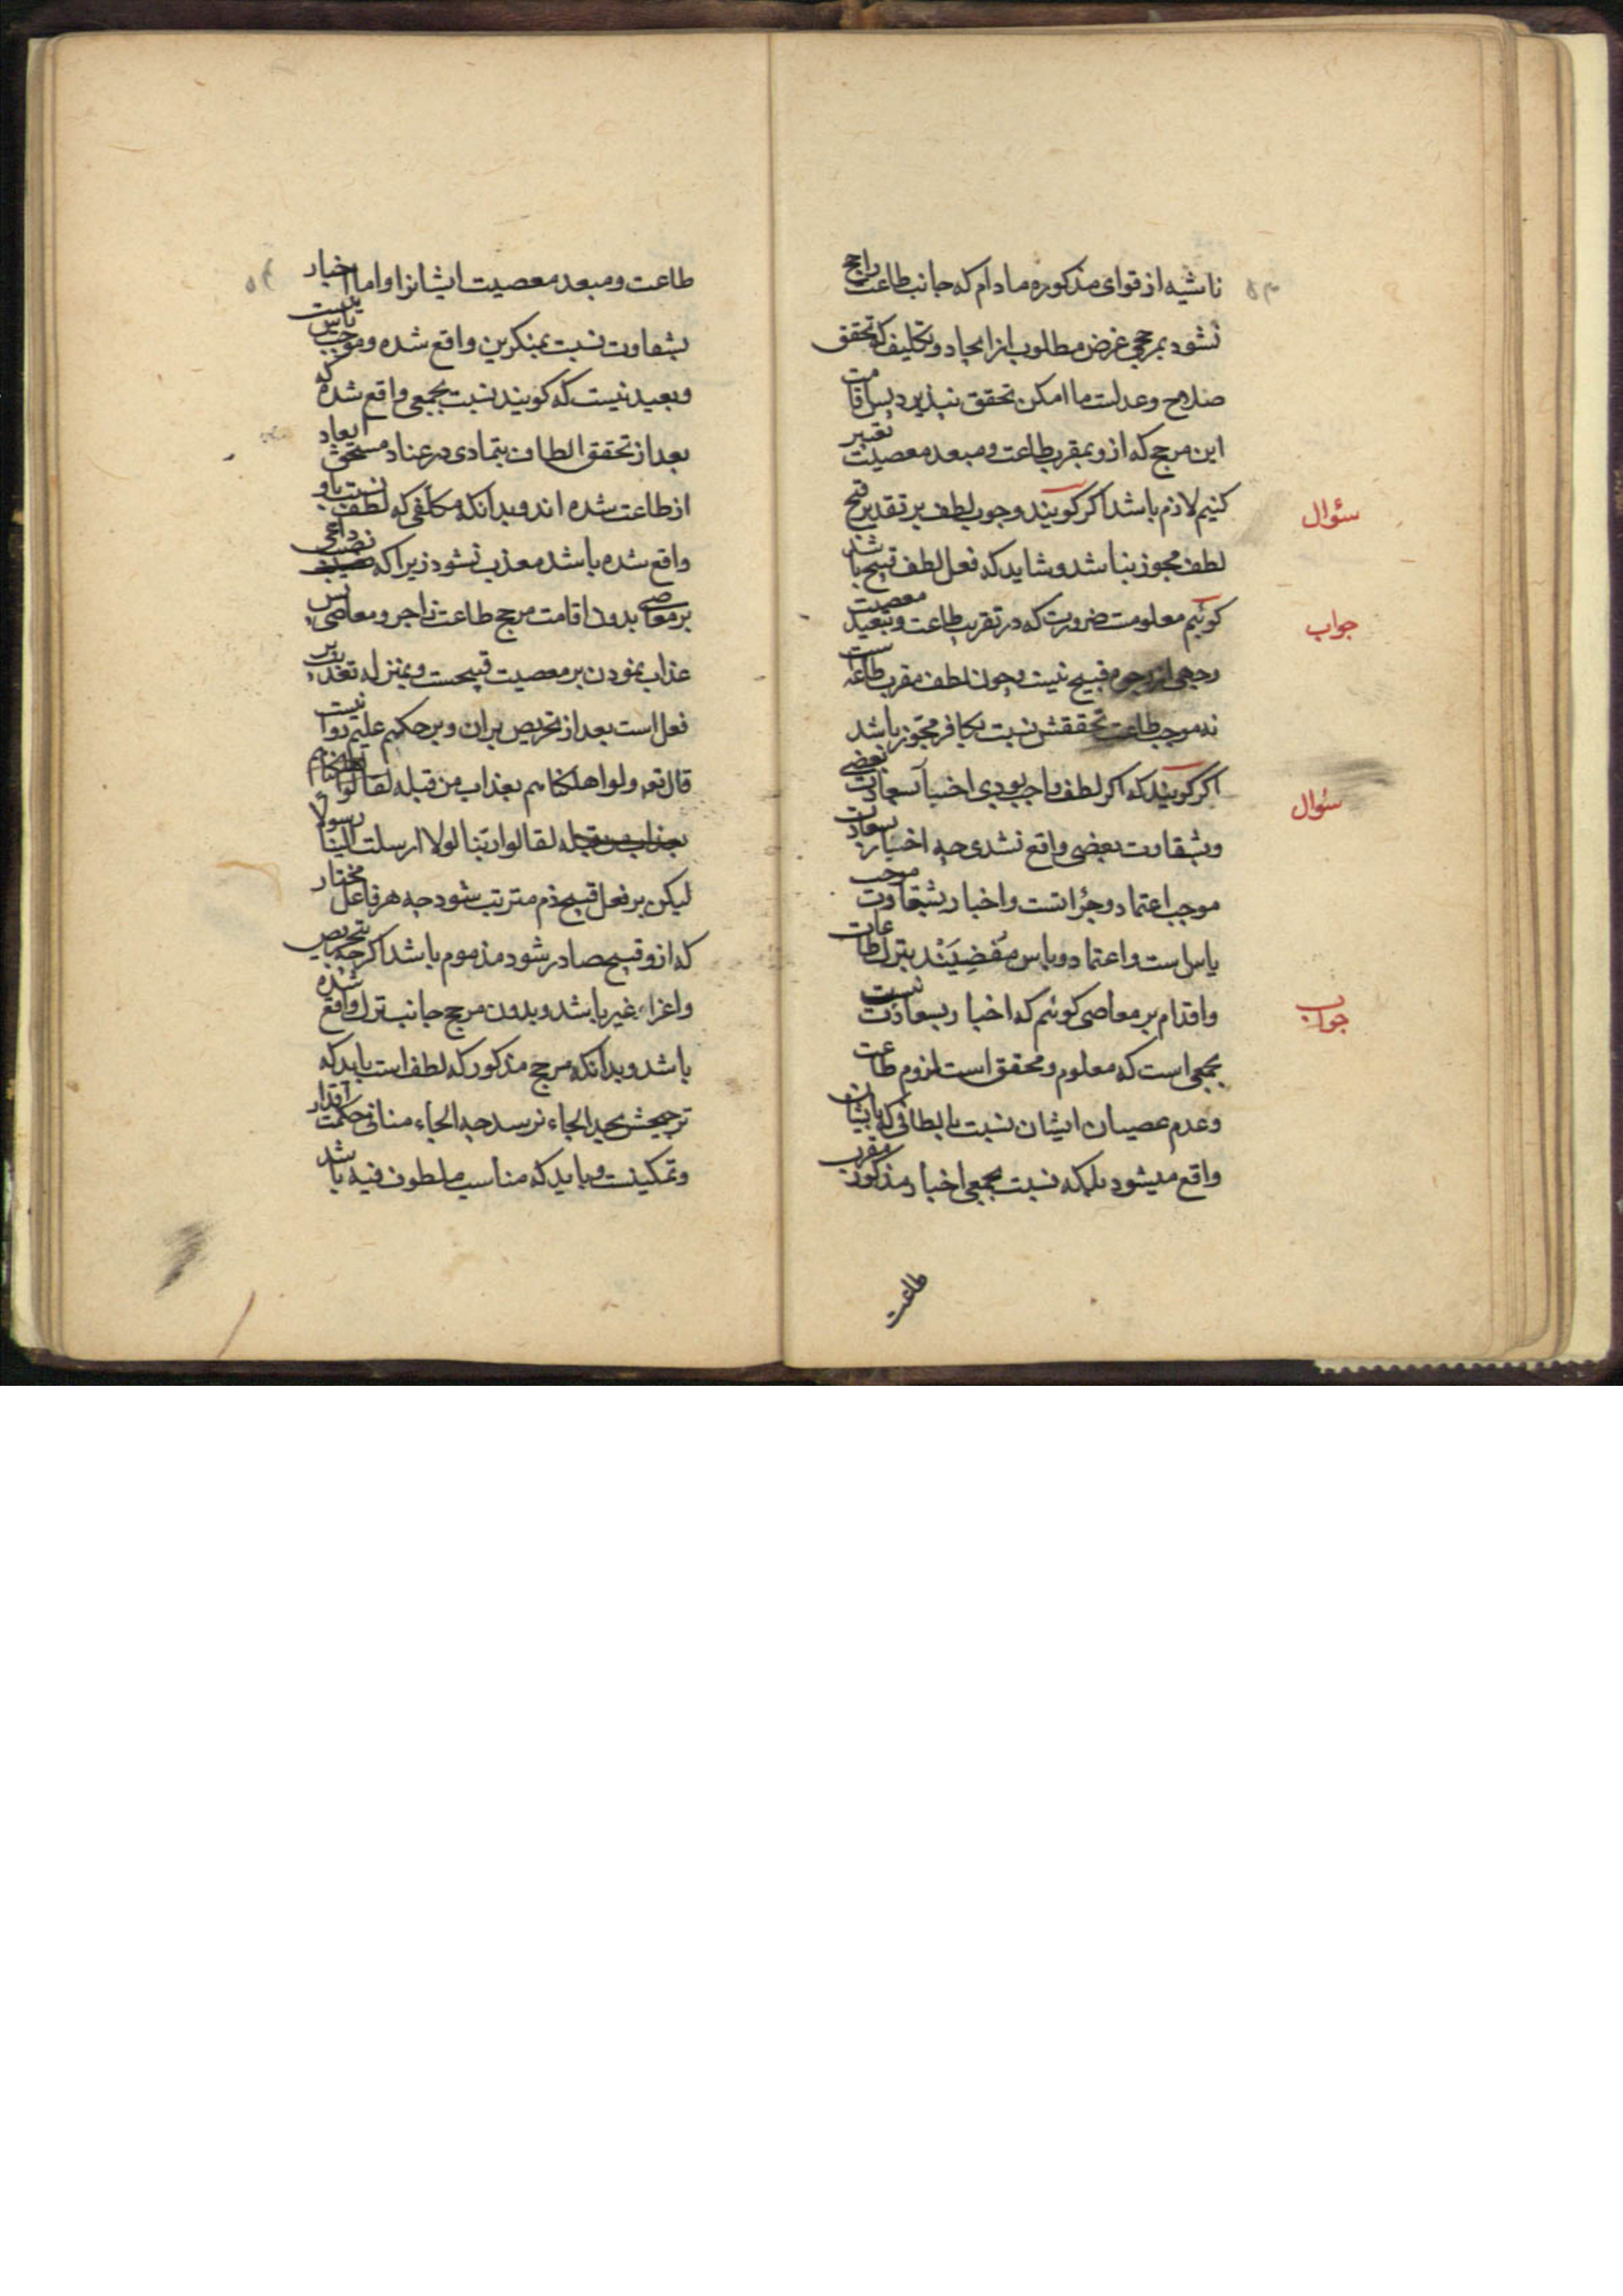 ناشیه از قوای مذکوره مادام که جانب طاعت راجح
نشود بمرجحی غرض مطلوب از ایجاد و تکلیف که تحقق
صلاح و عدلست ما امکن تحقق نپذیرد پس اقامت
این مرجح که ازو بمقرب طاعت و مبعد معصیت تعبیر
کنیم لازم باشد اکر کویند وجوب لطف بر تقدیر قبح
سؤال
لطف مجوز نباشد و شاید که فعل لطف قبیح باشد
کوئیم معلومست ضرورت که در تقریب طاعت و تبعید معصیت
جواب
وجهی از وجوه قبیح نیست و چون لطف مقرب طاعتست
نه موجب طاعت تحققش نسبت بکافر مجوز باشد
اکر کویند که اکر لطف واجب بودی اخبار بسعادت بعضی
سؤال
و بشقاوت بعضی واقع نشدی چه اخبار بسعادت
موجب اعتماد و جرٔاتست و اخبار بشقاوت موجب
یاس است و اعتماد و یاس مفضیَنْد بترک طاعات
و اقدام بر معاصی کوئیم که اخبار بسعادت نسبت
جواب
بجمعی است که معلوم و محقق است لزوم طاعت
و عدم عصیان ایشان نسبت بالطافی که بایشان
واقع میشود بلکه نسبت بجمعی اخبار مذکور مقرب
طاعت
طاعت و مبعد معصیت ایشانرا و اما اخبار
بشقاوت نسبت بمنکرین واقع شده و موجب یاس نیست
و بعید نیست که کویند نسبت بجمعی واقع شده که
بعد از تحقق الطاف بتمادی در عناد مستحق ابعاد
از طاعت شده اند و بدانکه مکلفی که لطف نسبت باو
واقع شده باشد معذب نشود زیرا که نصب داعی
بر معاصی بدون اقامت مرجح طاعت زاجر و معاصی پس
عذاب نمودن بر معصیت قبیحست و بمنزله تعذیب بر
فعل است بعد از تحریص بران و بر حکیم علیم روا نیست
قال تعه ولو اهلکناهم بعذاب من قبله لقالوا
بعذاب من قبله لقالوا ربنا لولا ارسلت الینا رسولا
لیکن بر فعل قبیح ذم مترتب شود چه هر فاعل مختار
که ازو قبیح صادر شود مذموم باشد اکر چه بتحریص
و اغراء غیر باشد و بدون مرجح جانب ترک واقع شده
باشد و بدانکه مرجح مذکور که لطف است باید که
ترجیحش بحد الجاء نرسد چه الجاء منافی حکمت اقدار
و تمکینست و باید که مناسب ملطوف فیه باشد